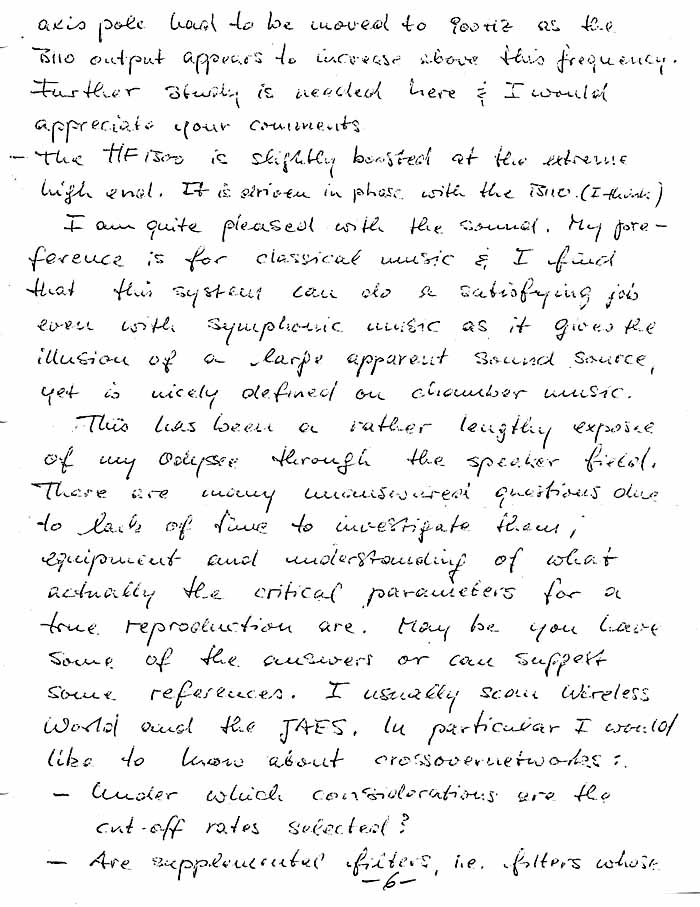 axis pole had to be moved to 900Hz as the
B110 output appears to increase above this frequency.
Further study is needed here & I would
appreciate your comments
- The HF1300 is slightly boosted at the extreme
high end. It is driven in phase with the B110. (I think)
I am quite pleased with the sound. My pre-
ference is for classical music & I find
that this system can do a satisfying job
even with symphonic music as it gives the
illusion of a large apparent sound source,
yet is nicely defined on chamber music.
This has been a rather lengthy exposee
of my Odyssee through the speaker field.
There are many unanswered questions due
to lack of time to investigate them;
equipment and understanding of what
actually the critical parameters for a
true reproduction are. May be you have
some of the answers or can suggest
some references. I usually scan Wireless
World and the JAES. In particular I would
like to know about crossovernetworks:
- Under which considerations are the
cut-off rates selected?
- Are supplemental filters, i.e. filters whose
-6-